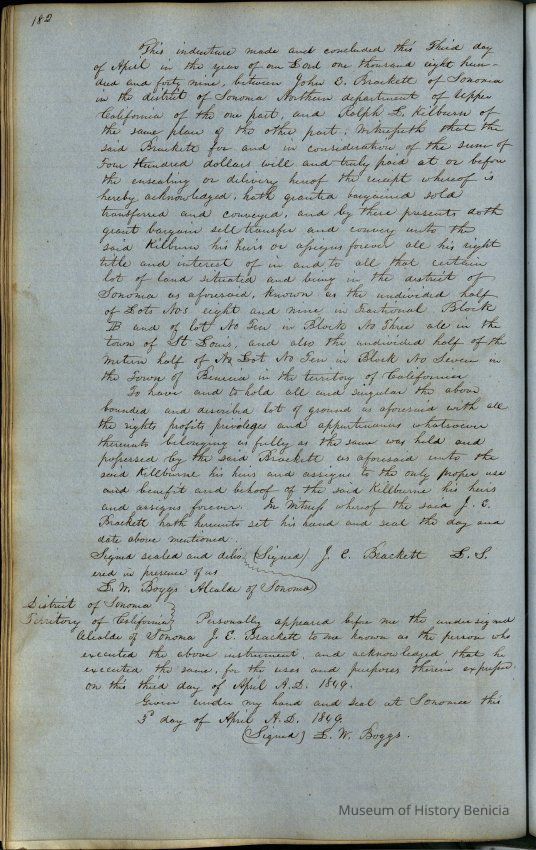 182
This indenture made and concluded this Third day
of April in the year of our Lord one thousand eight hun-
dred and forty nine, between John E. Brackett of Sonoma
in the district of Sonoma Northern department of Upper
California of the one part, and Ralph L. Kilburn of
the same place of the other part, Witnesseth that the
said Brackett for and in consideration of the sum of
Four Hundred dollars well and truly paid at or before
the ensealing or delivery hereof the receipt whereof is
hereby acknowledged, hath granted bargained sold
transferred and conveyed, and by these presents doth
grant bargain sell transfer and convey unto the
said Kilburn his heirs or assigns forever all his right
title and interest of in and to all that certain
lot of land situated and being in the district of
Sonoma as aforesaid, known as the undivided half
of Lots Nos eight and nine in fractional Block
B and of lot No Ten in Block No Three all in the
town of St Louis, and also the undivided half of the
western half of Lot No Ten in Block No Seven in
the Town of Benicia in the territory of California
To have and to hold all and singular the above
bounded and described lot of ground as aforesaid with all
the rights profits privileges and appurtenances whatsoever
thereunto belonging as fully as the same was held and
possessed by the said Brackett as aforesaid unto the
said Killburne his heirs and assigns to the only proper use
and benefit and behoof of the said Killburne his heirs
and assigns forever. In Witness whereof the said J. E.
Brackett hath hereunto set his hand and seal the day and
date above mentioned.
Signed sealed and deliv (Signed) J. E. Brackett L. S
ered in presence of us
L. W. Boggs Alcalde of Sonoma
District of Sonoma
Territory of California Personally appeared before me the undersigned
Alcalde of Sonoma J. E. Brackett to me known as the person who
executed the above instrument, and acknowledged that he
executed the same, for the uses and purposes therein expressed
on this third day of April A.D. 1849.
Given under my hand and seal at Sonoma this
3d day of April A.D. 1849
(Signed) L. W. Boggs.
Museum of History Benicia